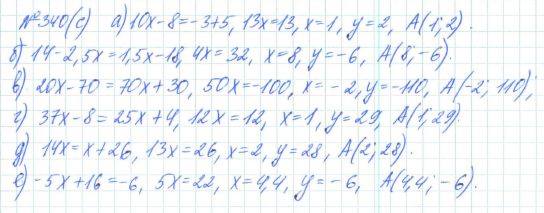 №340(с) а) 10x-8=-3+5, 13x=13, x=1, y=2, А(1; 2).
б) 14-2,5x=1,5x-18, 4x=32, x=8, y=-6, А(8; -6).
в) 20x-70=70x+30, 50x=-100, x=-2, y=-110, А(-2; 110);
г) 37x-8=25x+4, 12x=12, x=1, y=29, А(1; 29).
д) 14x=x+26, 13x=26, x=2, y=28, А(2; 28).
е) -5x+16=-6, 5x=22, x=4,4, y=-6, А(4,4; -6).